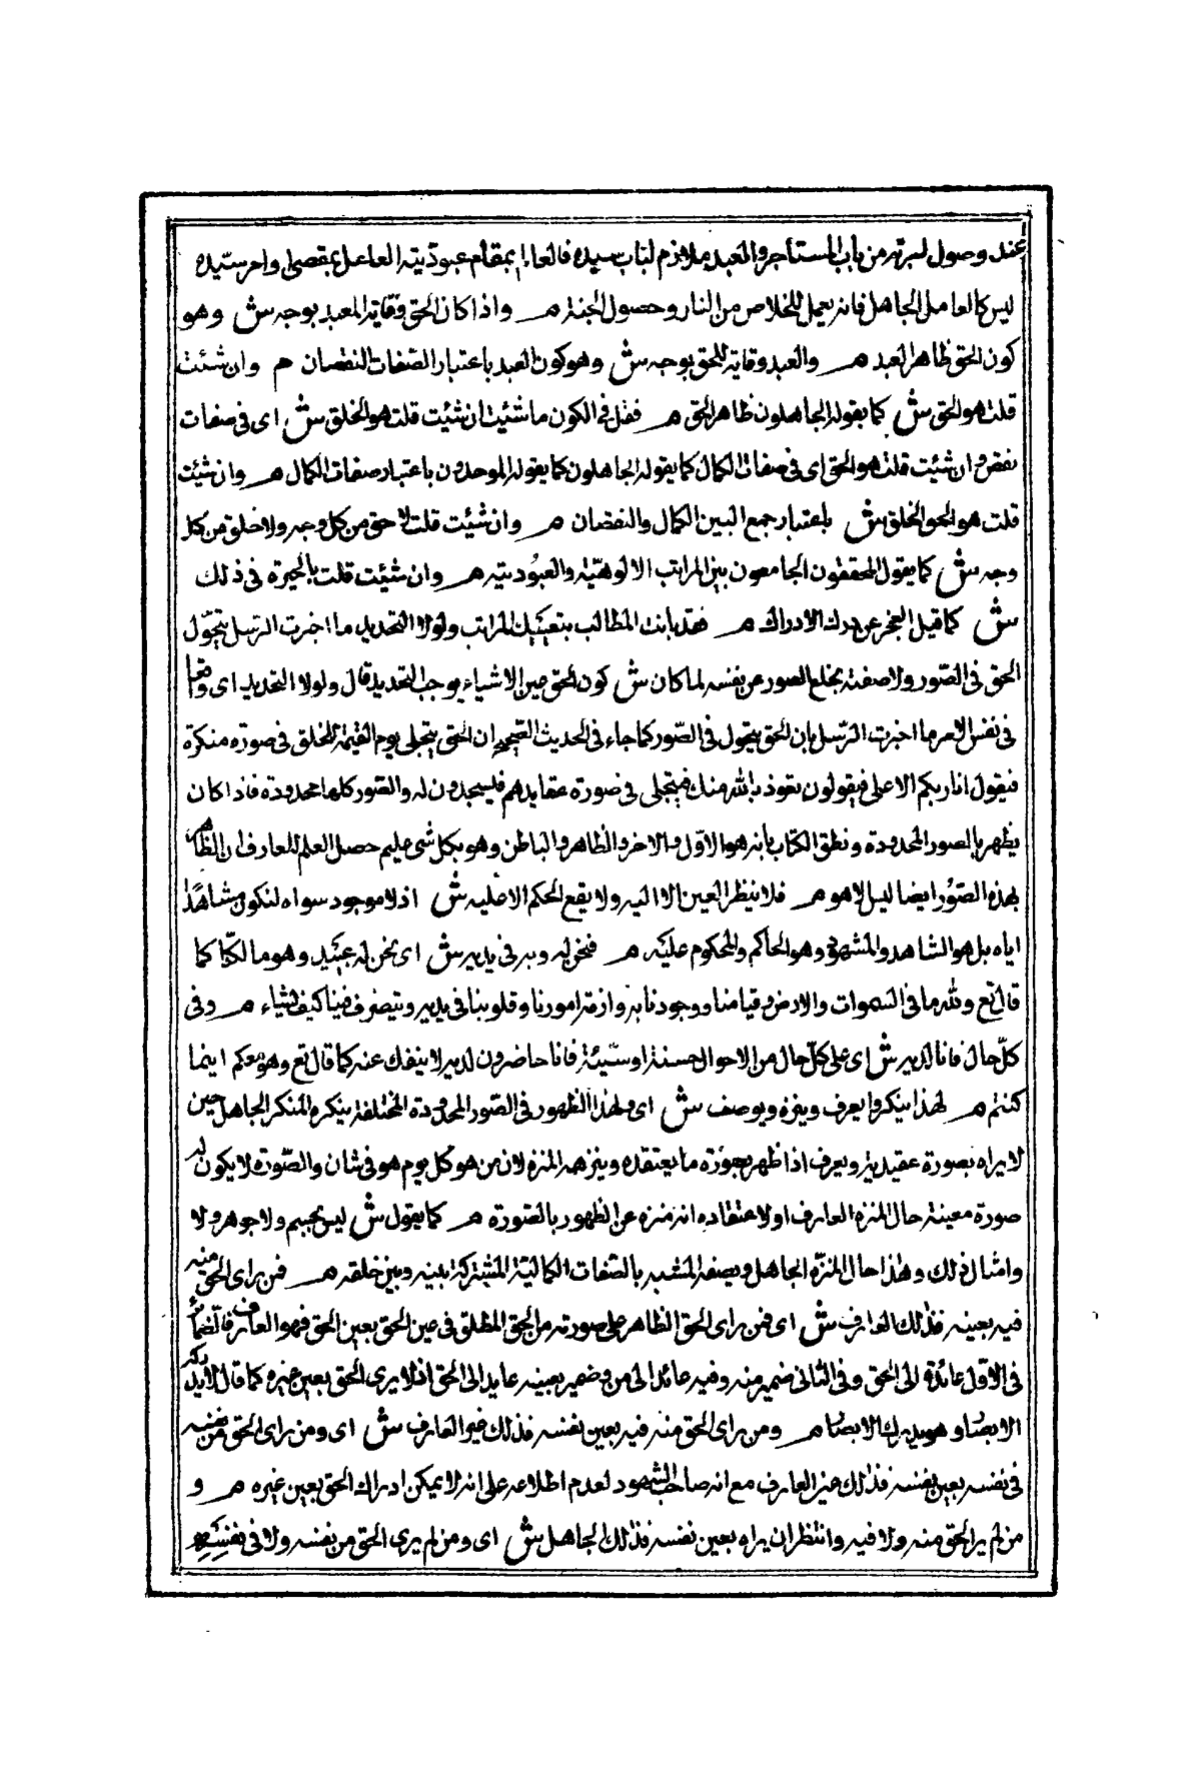 عند وصول اجرته من باب المستأجر والعبد ملازم لباب سيده فالعالم بمقام عبوديته العامل بمقتضى اوامر سيده
ليس كالعامل الجاهل فانه يعمل للخلاص من النار وحصول الجنة م واذا كان الحق وقاية للعبد بوجه ش وهو
كون الحق ظاهر العبد م والعبد وقاية للحق بوجه ش وهو كون العبد باعتبار الصفات النقصان م وان شئت
قلت هو الحق ش كما يقوله الجاهلون ظاهر الحق م فقل فى الكون ما شئت ان شئت قلت هو الخلق ش اى فى صفات
نقص م وان شئت قلت هو الحق اى فى صفات الكمال كما يقوله الجاهلون كما يقوله الموحدون باعتبار صفات الكمال م وان شئت
قلت هو الحق الخلق ش باعتبار جمع البين الكمال والنقصان م وان شئت قلت لا حق من كل وجه ولا خلق من كل
وجه ش كما يقول المحققون الجامعون بين المراتب الالوهية والعبودية م وان شئت قلت بالحيرة فى ذلك
ش كما قيل العجز عن درك الادراك م فقد بانت المطالب بتعيينك المراتب ولولا التحديد ما اخبرت الرسل بتحول
الحق فى الصور ولا صفته بخلع الصور عن نفسه لما كان ش كون الحق عين الاشياء يوجب التحديد قال ولولا التحديد اى واقعا
فى نفس الامر ما اخبرت الرسل بان الحق يتحول فى الصور كما جاء فى الحديث الصحيح ان الحق يتجلى يوم القيمة للخلق فى صورة منكرة
فيقول انا ربكم الاعلى فيقولون نعوذ بالله منك فيتجلى فى صورة عقايدهم فيسجدون له والصور كلها محدودة فاذا كان
يظهر بالصور المحدودة ونطق الكتاب بانه هو الاول والاخر والظاهر والباطن وهو بكل شى عليم حصل العلم للعارف ان الظاهر
بهذه الصور ايضا ليس الا هو م فلا ينظر العين الا اليه ولا يقع الحكم الا عليه ش اذ لا موجود سواه لنكون مشاهدا
اياه بل هو الشاهد والمشهود وهو الحاكم والمحكوم عليه م فنحن له وبه فى يديه ش اى نحن له عبيد وهو مالكنا كما
قال تع ولله ما فى السموات والارض وقيامنا ووجودنا به وازمة امورنا وقلوبنا فى يديه ويتصرف فينا كيف يشاء م وفى
كل حال فانا لديه ش اى على كل حال من الاحوال حسنة او سيئة فانا حاضرون لديه لا ينفك عنه كما قال تع وهو معكم اينما
كنتم م لهذا ينكر ويعرف وينزه ويوصف ش اى ولهذا الظهور فى الصور المحدودة المختلفة ينكره المنكر الجاهل حين
لا يراه بصورة عقيدته ويعرف اذا ظهر بصورة ما يعتقده وينزهه المنزه لان من هو كل يوم هو فى شان والصورة لا يكون له
صورة معينة حال المنزه العارف او لاعتقاده انه منزه عن الظهور بالصورة م كما يقول ش ليس بجسم ولا جوهر ولا
وامثال ذلك وهذا حال المنزه الجاهل ويصفه المشبه بالصفات الكمالية المشتركة بينه وبين خلقه م فمن راى الحق منه
فيه بعينه فذلك العارف ش اى فمن راى الحق الظاهر على صورته من الحق المطلق فى عين الحق بعين الحق فهو العارف فالضمائر
فى الاول عائدة الى الحق وفى الثانى ضمير منه وفيه عائد الى من وضمير بعينه عايد الى الحق اذ لا يرى الحق بعين غيره كما قال لا تدركه
الابصار وهو يدرك الابصار م ومن راى الحق منه فيه بعين نفسه فذلك غير العارف ش اى ومن راى الحق من نفسه
فى نفسه بعين نفسه فذلك غير العارف مع انه صاحب الشهود لعدم اطلاعه على انه لا يمكن ادراك الحق بعين غيره م و
من لم ير الحق منه ولا فيه وانتظر ان يراه بعين نفسه فذلك الجاهل ش اى ومن لم يرى الحق من نفسه ولا فى نفسه